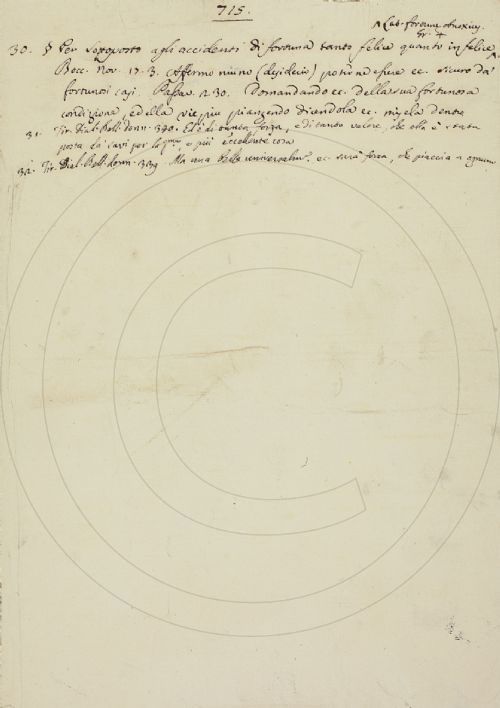 715.
^ Lat. fortunae obnoxius,
Gr. +
30. § Per Sottoposto agli accidenti di fortuna tanto felice quanto infelice ^.
Bocc. Nov. 17. 3. Affermo niuno (desiderio) potere essere ec. sicuro da'
fortunosi casi. Passav. 230. Domandando ec. della sua fortunosa
condizione, ed ella vie più piangendo dicendola ec.
31. Fir. Dial. Bell. donn. 340. Ed è di tanta forza, e di tanto valore, che ella è stata
posta da' savj per la e più eccellente cosa
32. Fir. Dial. Bell. donn. 339. Ma una bella universalm. ec. sarà forza, che piaccia a ognuno